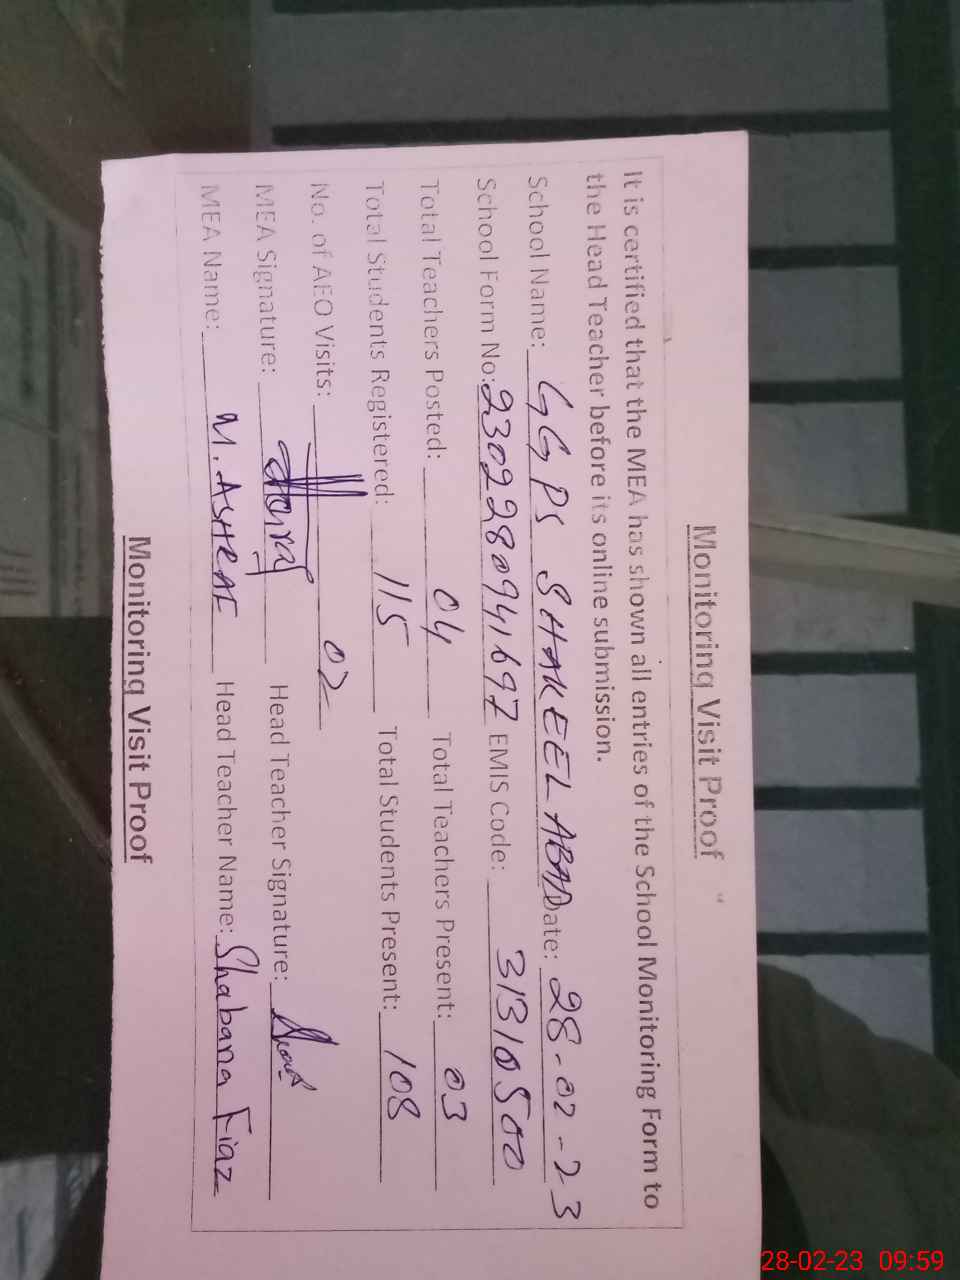 Monitoring Visit Proof
It is certified that the MEA has shown all entries of the School Monitoring Form to
the Head Teacher before its online submission.
School Name: GGPS SHAKEEL ABAD Date: 28-02-23
School Form No: 23022809941697 EMIS Code: 31310500
Total Teachers Posted: 04 Total Teachers Present: 03
Total Students Registered: 115 Total Students Present: 108
No. of AEO Visits: 02
MEA Signature: Head Teacher Signature:
MEA Name: M. ASHRAF Head Teacher Name: Shabana Fiaz
Monitoring Visit Proof
28-02-23 09:59